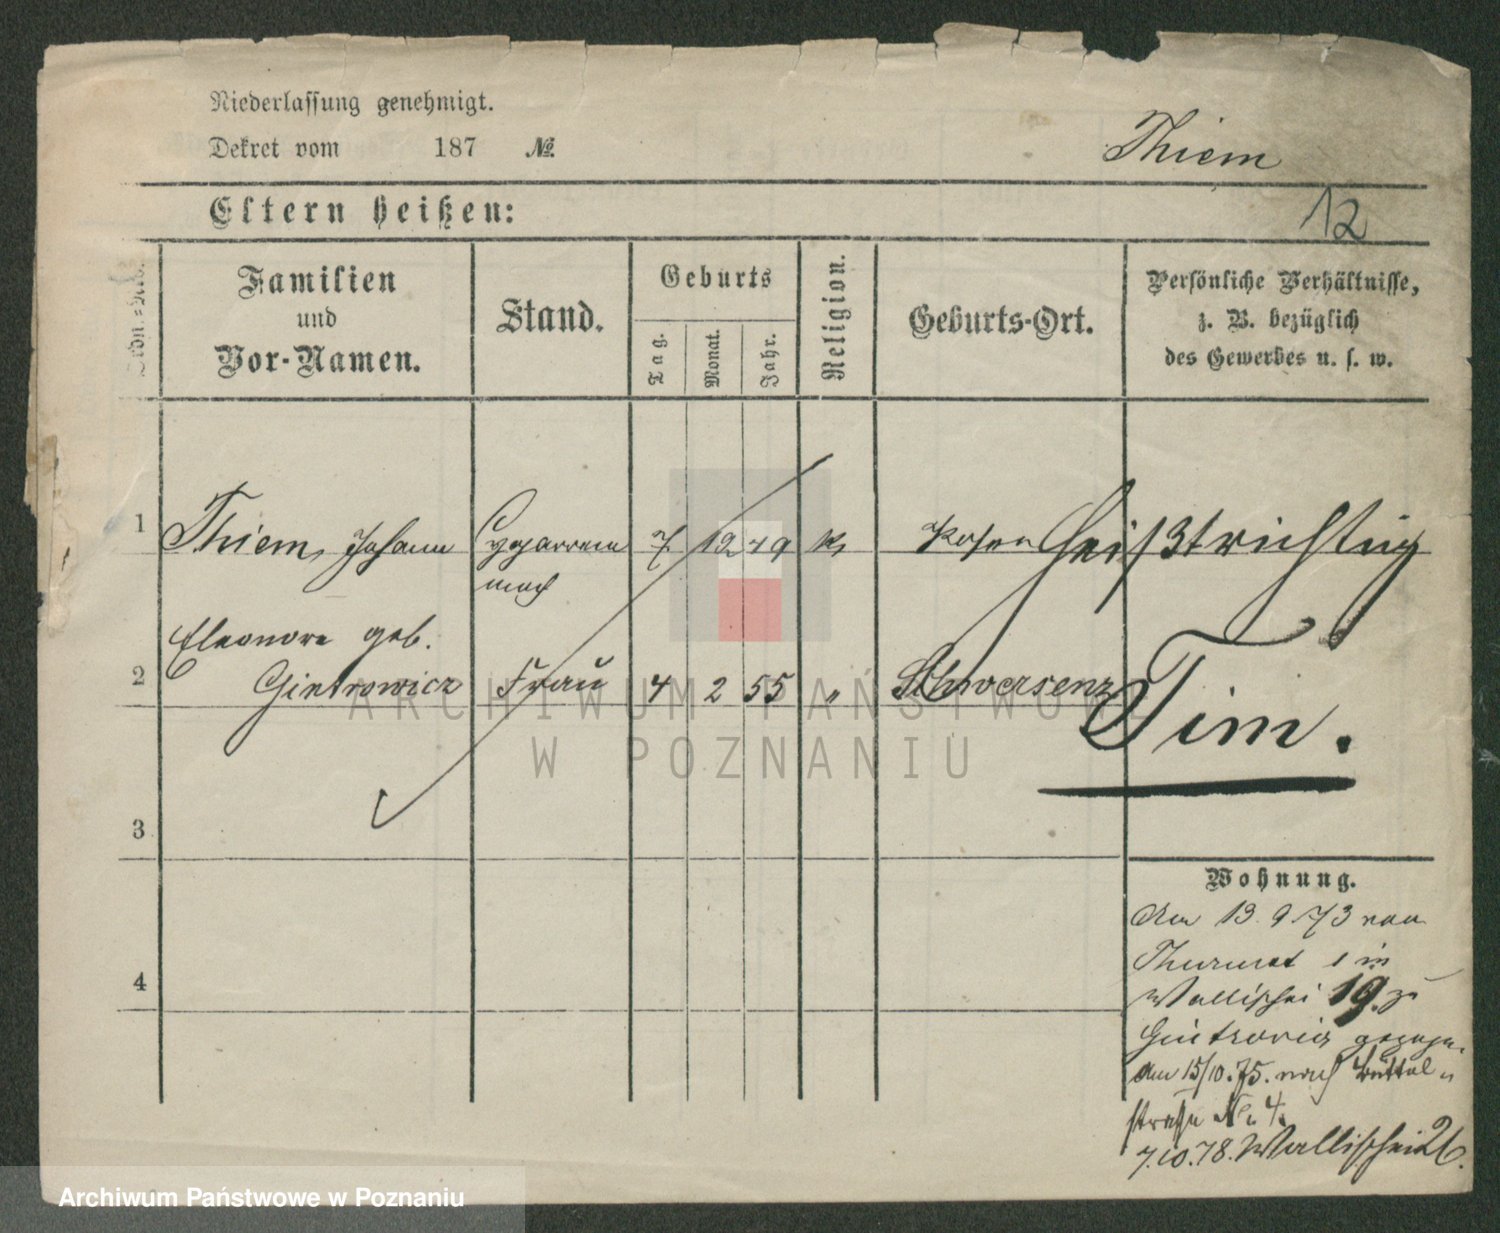 Niederlassung genehmigt.
Dekret vom 187 №.
Thiem
Eltern heißen:
12
Ordn.-No.
Familien und Vor-Namen.
Stand.
Geburts
Tag.
Monat.
Jahr.
Religion.
Geburts-Ort.
Persönliche Verhältnisse,
z. B. bezüglich
des Gewerbes u. s. w.
1 Thiem, Johann 7 12 49 k. Posen heißt richtig
Eleonore geb.
2 Gintrowicz Frau 4 2 55 " Schwersenz Tim.
3
4
Wohnung.
Am 13. 9. 73 von
1 in
Wallischei 19. zu
Gintrowicz
Am 15/10. 75. nach Büttel-
straße No 4.
7.10.78. Wallischei 26.
ARCHIWUM PAŃSTWOWE
W POZNANIU
Archiwum Państwowe w Poznaniu